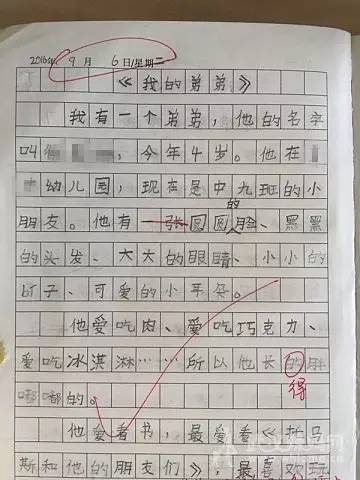 2016年 9 月 6 日/星期二
《我的弟弟》
我有一个弟弟，他的名字
叫，今年4岁。他在
幼儿园，现在是中九班的小
朋友。他有一张圆圆的脸、黑黑
的头发、大大的眼睛、小小的
子、可爱的小耳朵。
他爱吃肉、爱吃巧克力、
爱吃冰淇淋……所以他长的胖
得
嘟嘟的。
他爱看书，最爱看《托马
斯和他的朋友们》，最喜欢玩